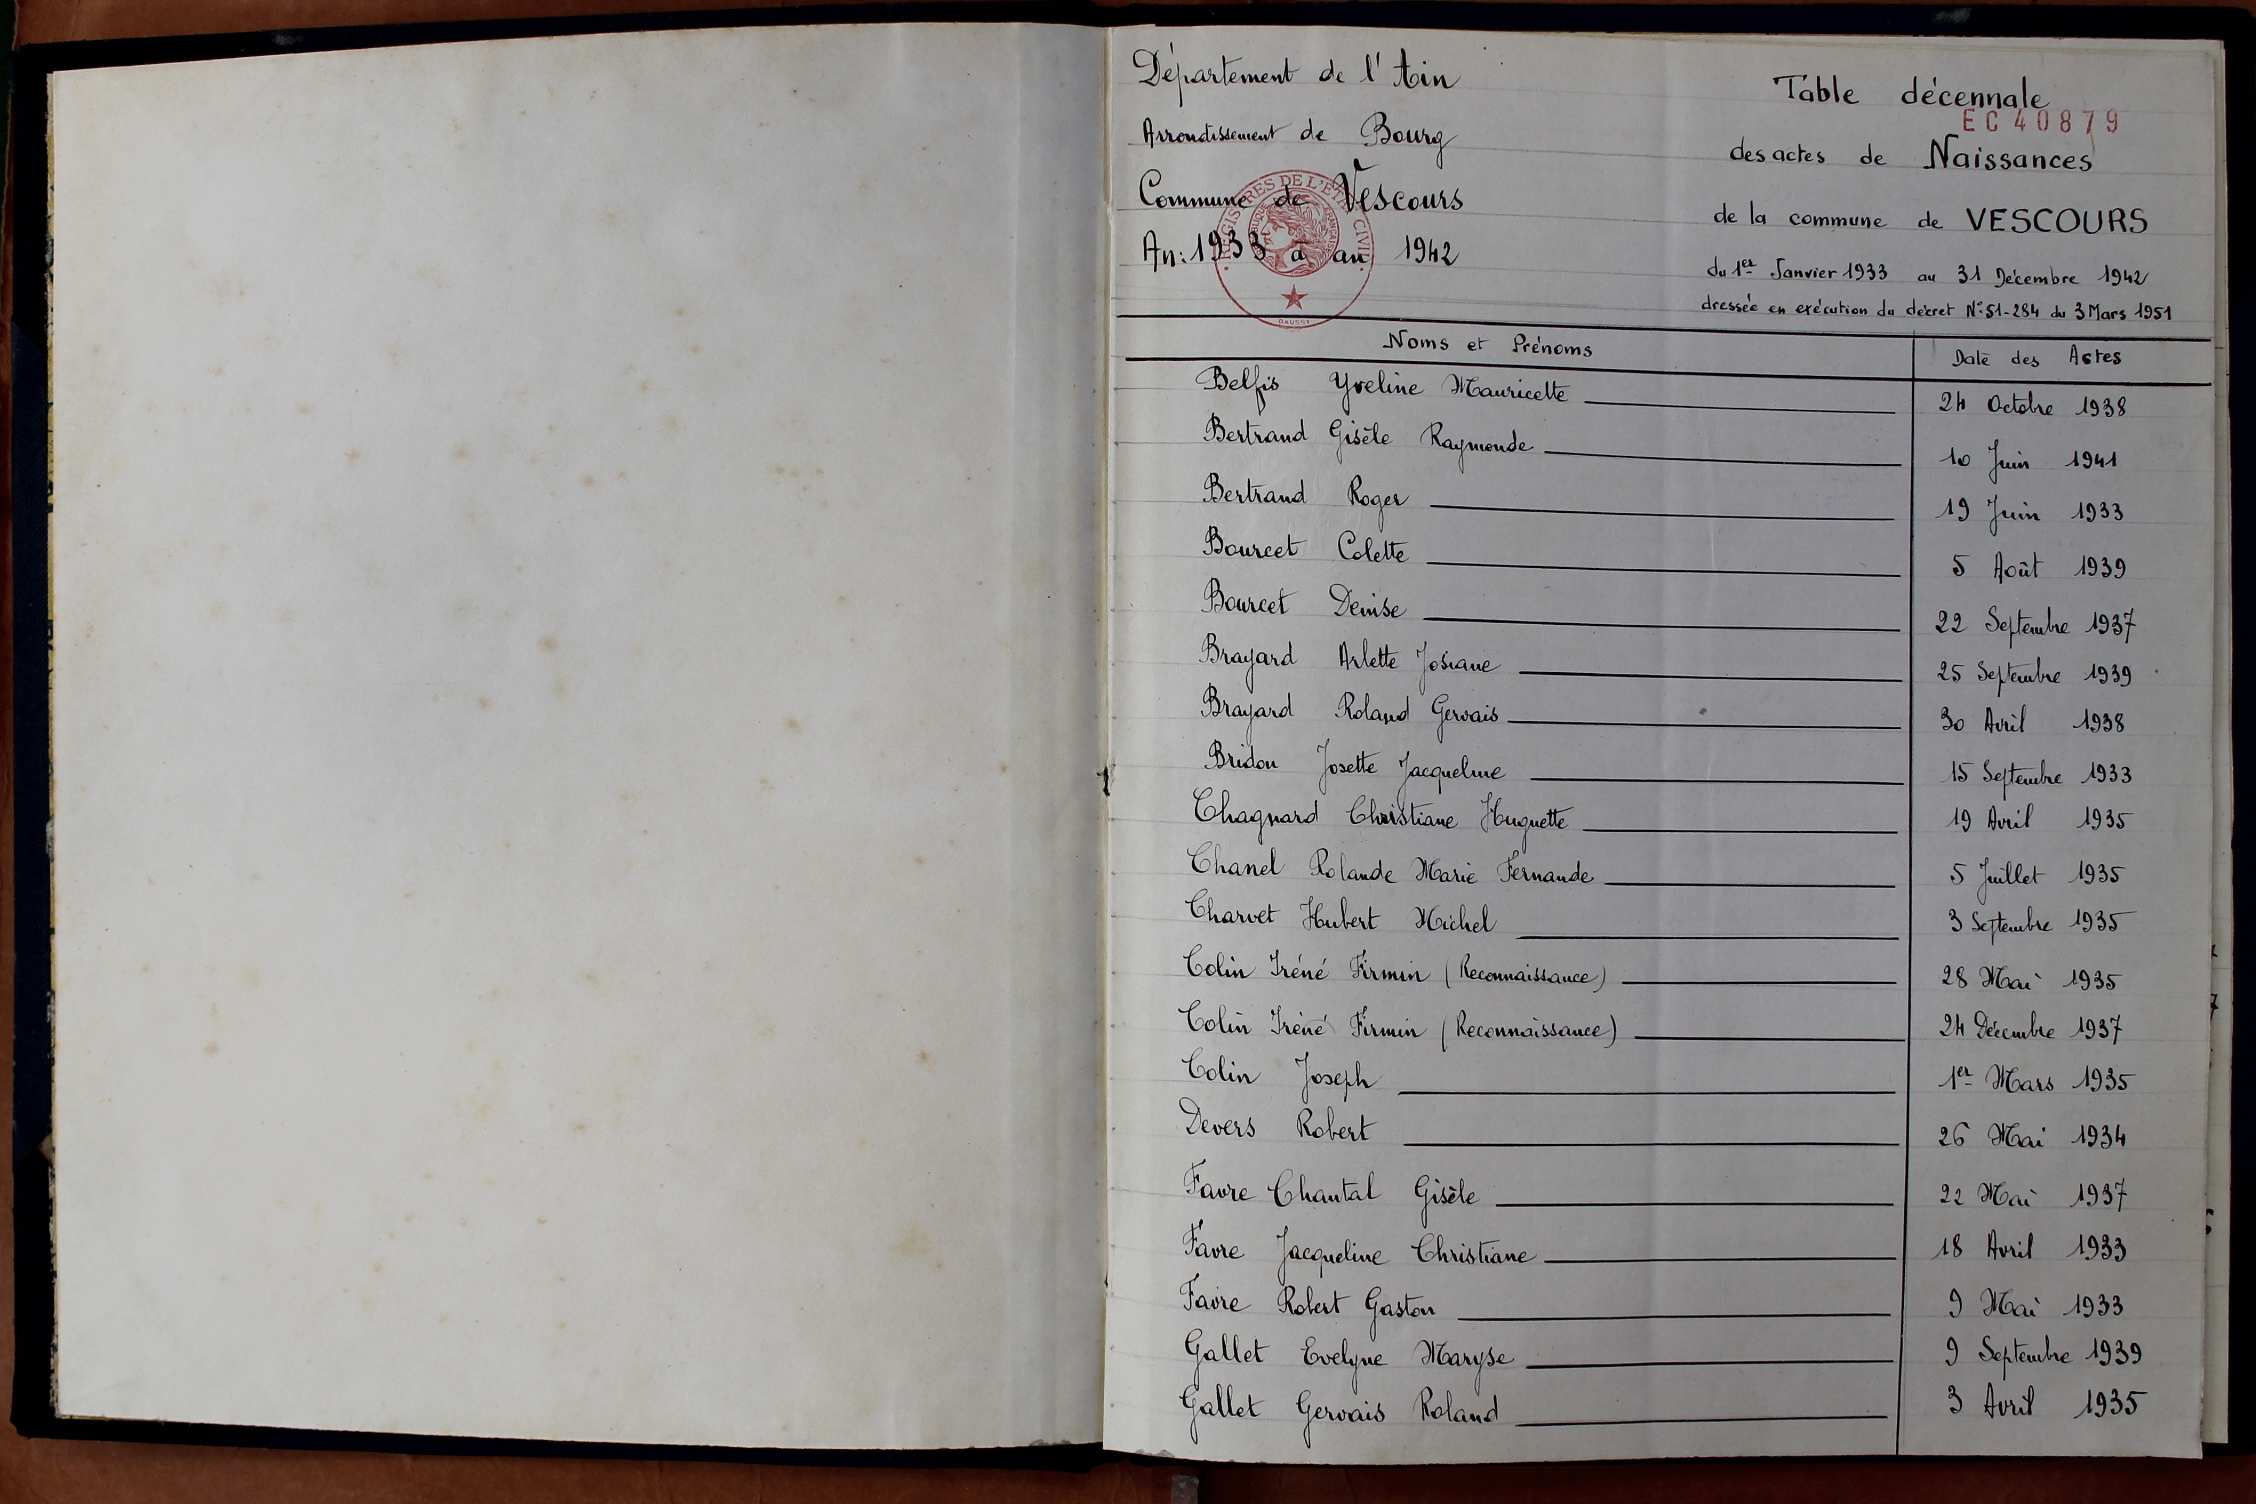 Département de l'Ain
Arrondissement de Bourg
Commune de Vescours
An: 1933 à an 1942
REGISTRES DE L'ÉTAT CIVIL
Table décennale
EC 40879
des actes de Naissances
de la commune de VESCOURS
du 1er Janvier 1933 au 31 Décembre 1942
dressée en exécution du décret N° 51-284 du 3 Mars 1951
Noms et Prénoms Date des Actes
Belfis Yveline Mauricette 24 Octobre 1938
Bertrand Gisèle Raymonde 10 Juin 1941
Bertrand Roger 19 Juin 1933
Bourcet Colette 5 Août 1939
Bourcet Denise 22 Septembre 1937
Brayard Arlette Josiane 25 Septembre 1939
Brayard Roland Gervais 30 Avril 1938
Bridon Josette Jacqueline 15 Septembre 1933
Chagnard Christiane Huguette 19 Avril 1935
Chanel Rolande Marie Fernande 5 Juillet 1935
Charvet Hubert Michel 3 Septembre 1935
Colin Iréné Firmin (Reconnaissance) 28 Mai 1935
Colin Iréné Firmin (Reconnaissance) 24 Décembre 1937
Colin Joseph 1er Mars 1935
Devers Robert 26 Mai 1934
Favre Chantal Gisèle 22 Mai 1937
Favre Jacqueline Christiane 18 Avril 1933
Favre Robert Gaston 9 Mai 1933
Gallet Evelyne Maryse 9 Septembre 1939
Gallet Gervais Roland 3 Avril 1935